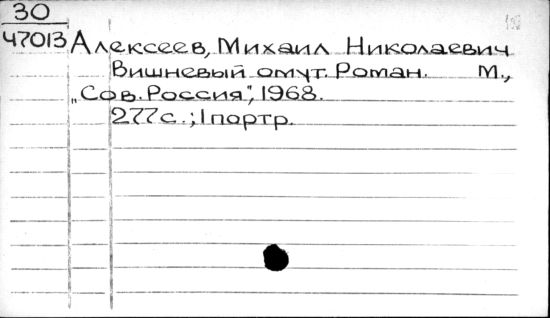 30
47013 Алексеев, Михаил Николаевич
Вишневый омут. Роман. М.,
„Сов. Россия", 1968.
277с.; 1портр.